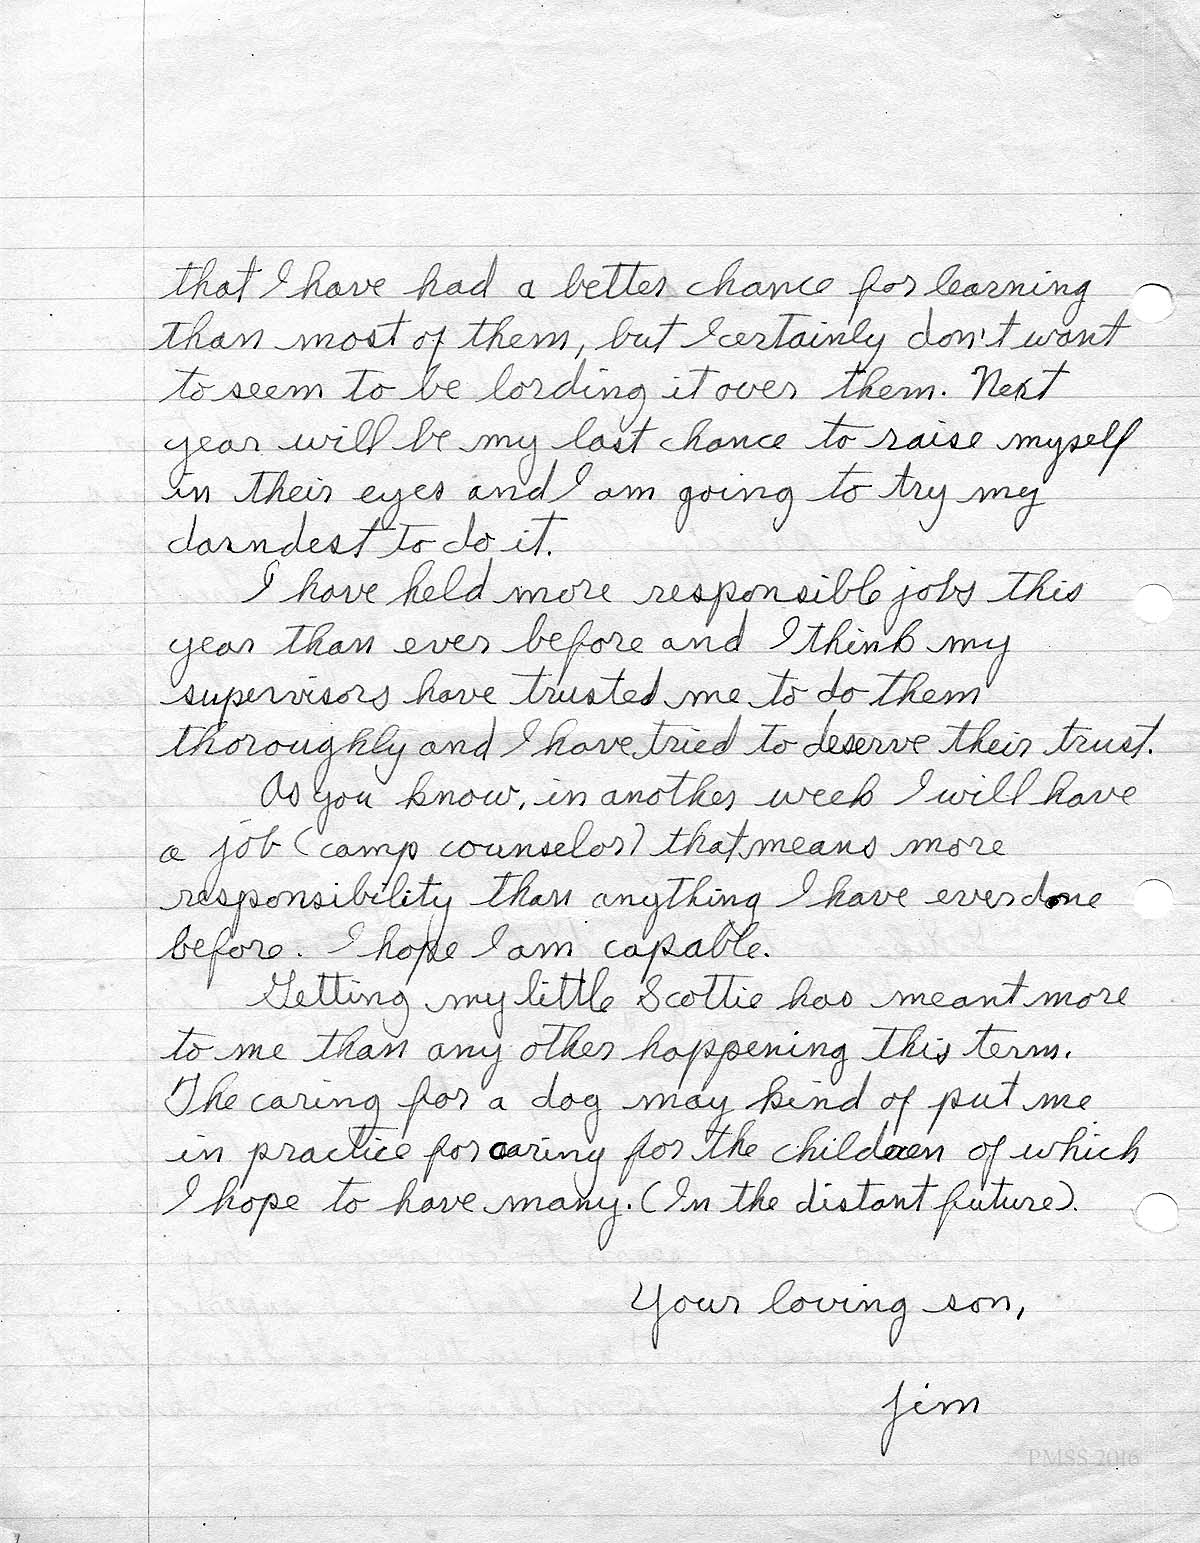 that I have had a better chance for learning
than most of them, but I certainly don't want
to seem to be lording it over them. Next
year will be my last chance to raise myself
in their eyes and I am going to try my
darndest to do it.
I have held more responsible jobs this
year than ever before and I think my
supervisors have trusted me to do them
thoroughly and I have tried to deserve their trust.
As you know, in another week I will have
a job (camp counselor) that means more
responsibility than anything I have ever done
before. I hope I am capable.
Getting my little Scottie has meant more
to me than any other happening this term.
The caring for a dog may kind of put me
in practice for caring for the children of which
I hope to have many. (In the distant future).
Your loving son,
Jim
PMSS 2016